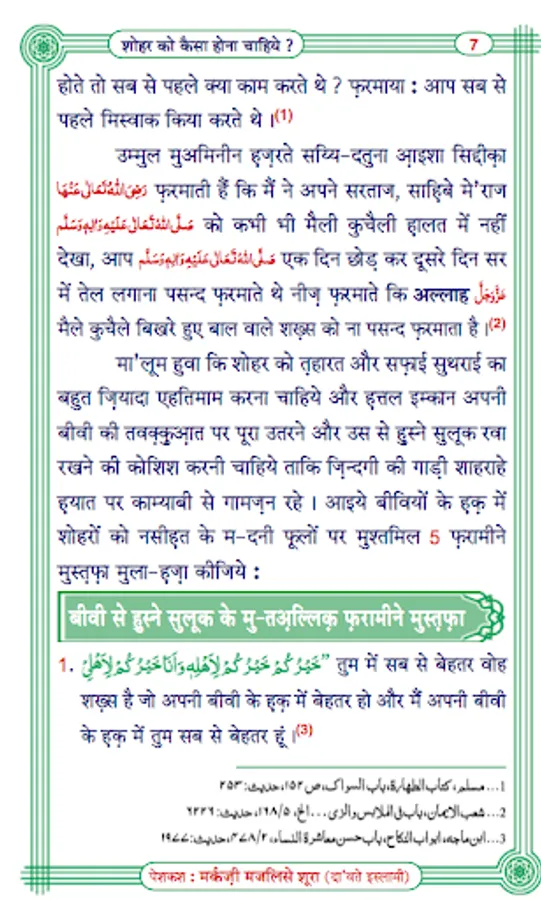 शोहर को कैसा होना चाहिये ?
7
होते तो सब से पहले क्या काम करते थे ? फ़रमाया : आप सब से
पहले मिस्वाक किया करते थे ।(1)
उम्मुल मुअमिनीन हज़रते सय्यि-दतुना आ़इशा सिद्दीक़ा
رَضِیَ اللّٰہُ تَعَالٰی عَنْہَا फ़रमाती हैं कि मैं ने अपने सरताज, साहिबे मे'राज
صَلَّی اللّٰہُ تَعَالٰی عَلَیْہِ وَاٰلِہٖ وَسَلَّم को कभी भी मैली कुचैली हालत में नहीं
देखा, आप صَلَّی اللّٰہُ تَعَالٰی عَلَیْہِ وَاٰلِہٖ وَسَلَّم एक दिन छोड़ कर दूसरे दिन सर
में तेल लगाना पसन्द फ़रमाते थे नीज़ फ़रमाते कि अल्लाह عَزَّوَجَلَّ
मैले कुचैले बिखरे हुए बाल वाले शख़्स को ना पसन्द फ़रमाता है ।(2)
मा'लूम हुवा कि शोहर को त़हारत और सफ़ाई सुथराई का
बहुत ज़ियादा एहतिमाम करना चाहिये और हत्तल इम्कान अपनी
बीवी की तवक़्क़ुआ़त पर पूरा उतरने और उस से हुस्ने सुलूक रवा
रखने की कोशिश करनी चाहिये ताकि ज़िन्दगी की गाड़ी शाहराहे
ह़यात पर काम्याबी से गामज़न रहे । आइये बीवियों के ह़क़ में
शोहरों को नसीह़त के म-दनी फूलों पर मुश्तमिल 5 फ़रामीने
मुस्त़फ़ा मुला-ह़ज़ा कीजिये :
बीवी से हुस्ने सुलूक के मु-तअ़ल्लिक़ फ़रामीने मुस्त़फ़ा
1. ”خَیْرُکُمْ خَیْرُکُمْ لِاَہْلِہٖ وَاَنَا خَیْرُکُمْ لِاَہْلِیْ“ तुम में सब से बेहतर वोह
शख़्स है जो अपनी बीवी के ह़क़ में बेहतर हो और मैं अपनी बीवी
के ह़क़ में तुम सब से बेहतर हूं ।(3)
1...مسلم، کتاب الطہارۃ، باب السواک، ص ۱۵۲، حدیث: ۲۵۳
2...شعب الایمان، باب فی الملابس والزی...الخ، ۵/ ۱۶۸، حدیث: ۶۲۲۶
3...ابن ماجہ، ابواب النکاح، باب حسن معاشرۃ النساء، ۲/ ۴۷۸، حدیث: ۱۹۷۷
पेशकश : मर्कज़ी मजलिसे शूरा (दा'वते इस्लामी)